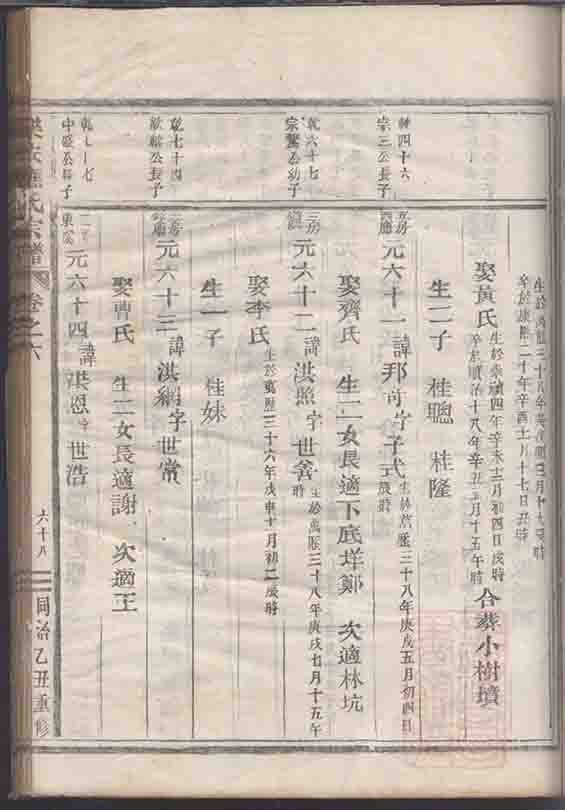 生於萬歷三十八年
卒於康熙二十年辛酉十月十七日丑時
娶黃氏 生於崇禎四年辛未十二月初四日戌時 合葬小樹墳
卒於順治十八年辛丑三月十五午時
生二子 桂聰 桂隆
宗三公長子
元六十一 諱邦奇字子式 生於萬歷三十八年庚戌五月初四日
辰時
娶齊氏 生二女長適下底垟鄭 次適林坑
乾六十七
宗鷔公幼子
元六十二 諱洪照字世舍 生於萬歷三十八年庚戌七月十五午
時
娶李氏 生於萬歷三十六年戊申十月初二辰時
生一子 桂妹
乾七十四
公長子
元六十三 諱洪綱字世常
娶曹氏 生二女長適謝 次適王
中
公長子
元六十四 諱洪恩字世浩
氏宗譜
卷之六
六十八
同治乙丑重修